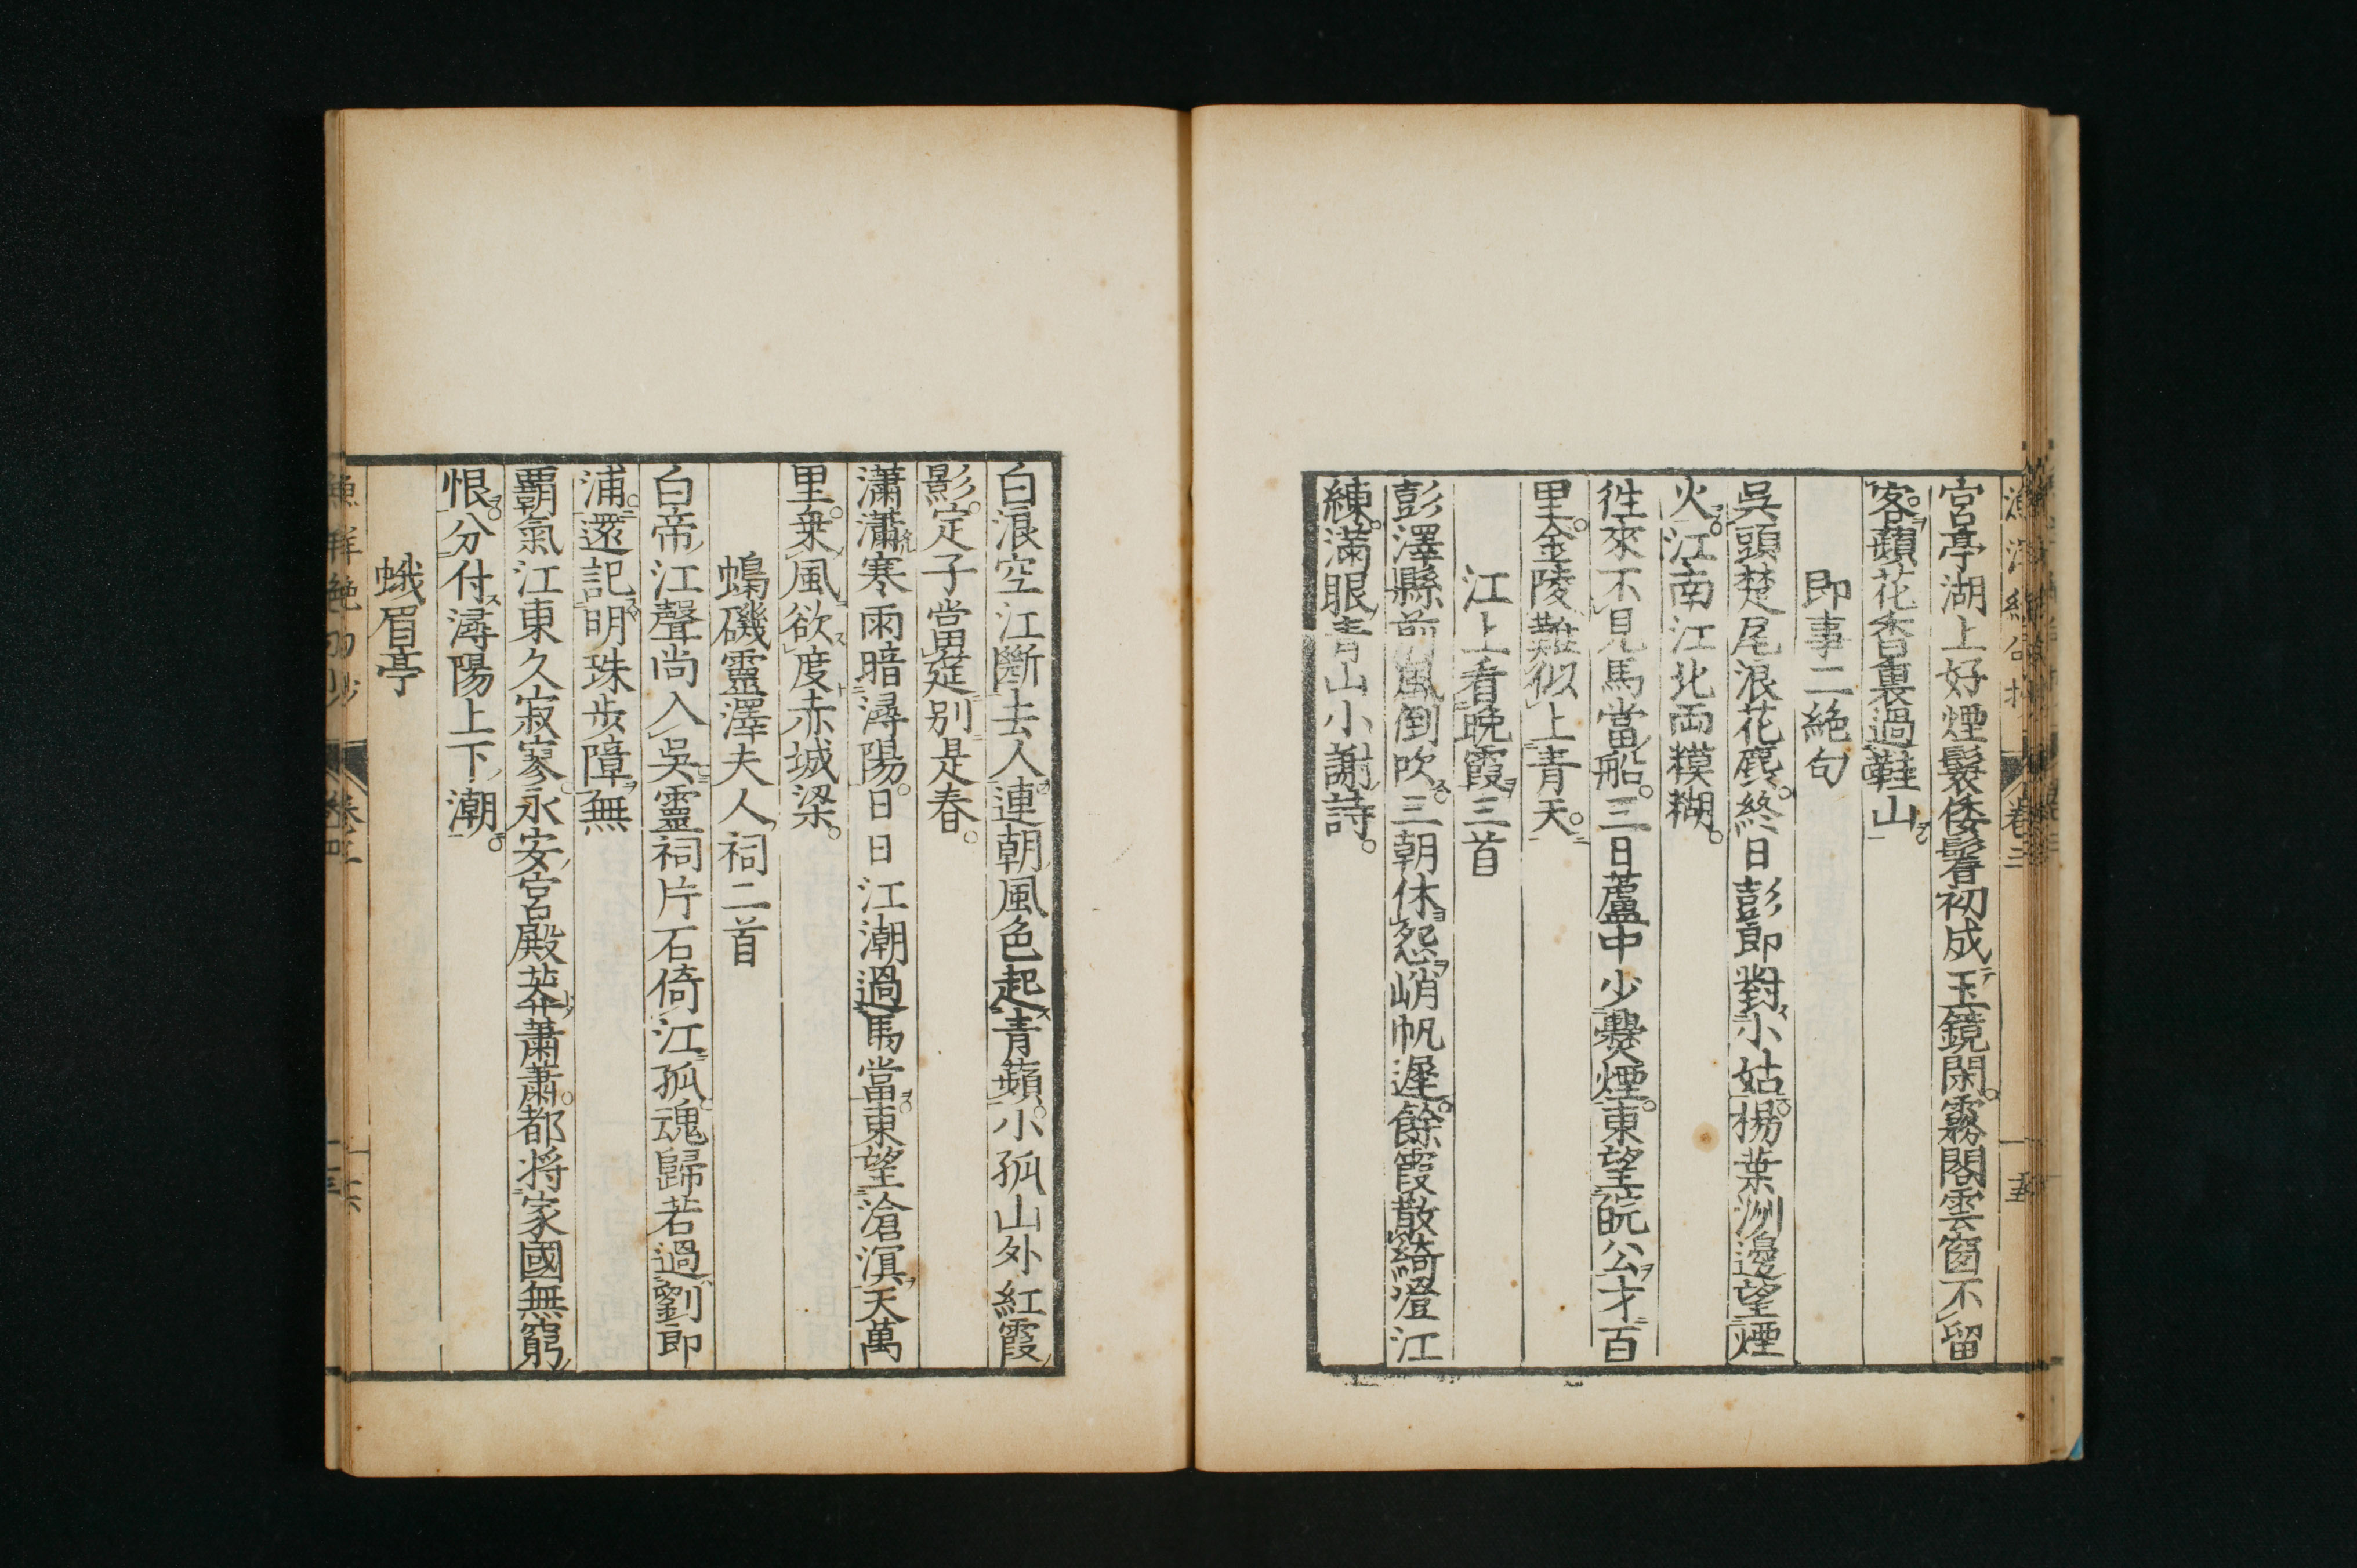 宮亭湖上好煙鬟倭髻初成玉鏡閑霧閣雲窗不留
客蘋花香裏過鞋山
即事二絶句
吳頭楚尾浪花麄終日彭郎對小姑楊葉洲邊望煙
火江南江北雨糢糊
徃來不見馬當船三日蘆中少爨煙東望皖公才百
里金陵難似上青天
江上看晩霞三首
彭澤縣前風倒吹三朝休怨峭帆遲餘霞散綺澄江
練滿眼青山小謝詩
白浪空江斷去人連朝風色起青蘋小孤山外紅霞
影定子當筵別是春
瀟瀟寒雨暗潯陽日日江潮過馬當東望滄溟天萬
里乗風欲度赤城梁
蟂磯靈澤夫人祠二首
白帝江聲尚入吳靈祠片石倚江孤魂歸若過劉郎
浦還記明珠步障無
覇氣江東久寂寥永安宮殿莽蕭蕭都将家國無窮
恨分付潯陽上下潮
蛾眉亭
卷三